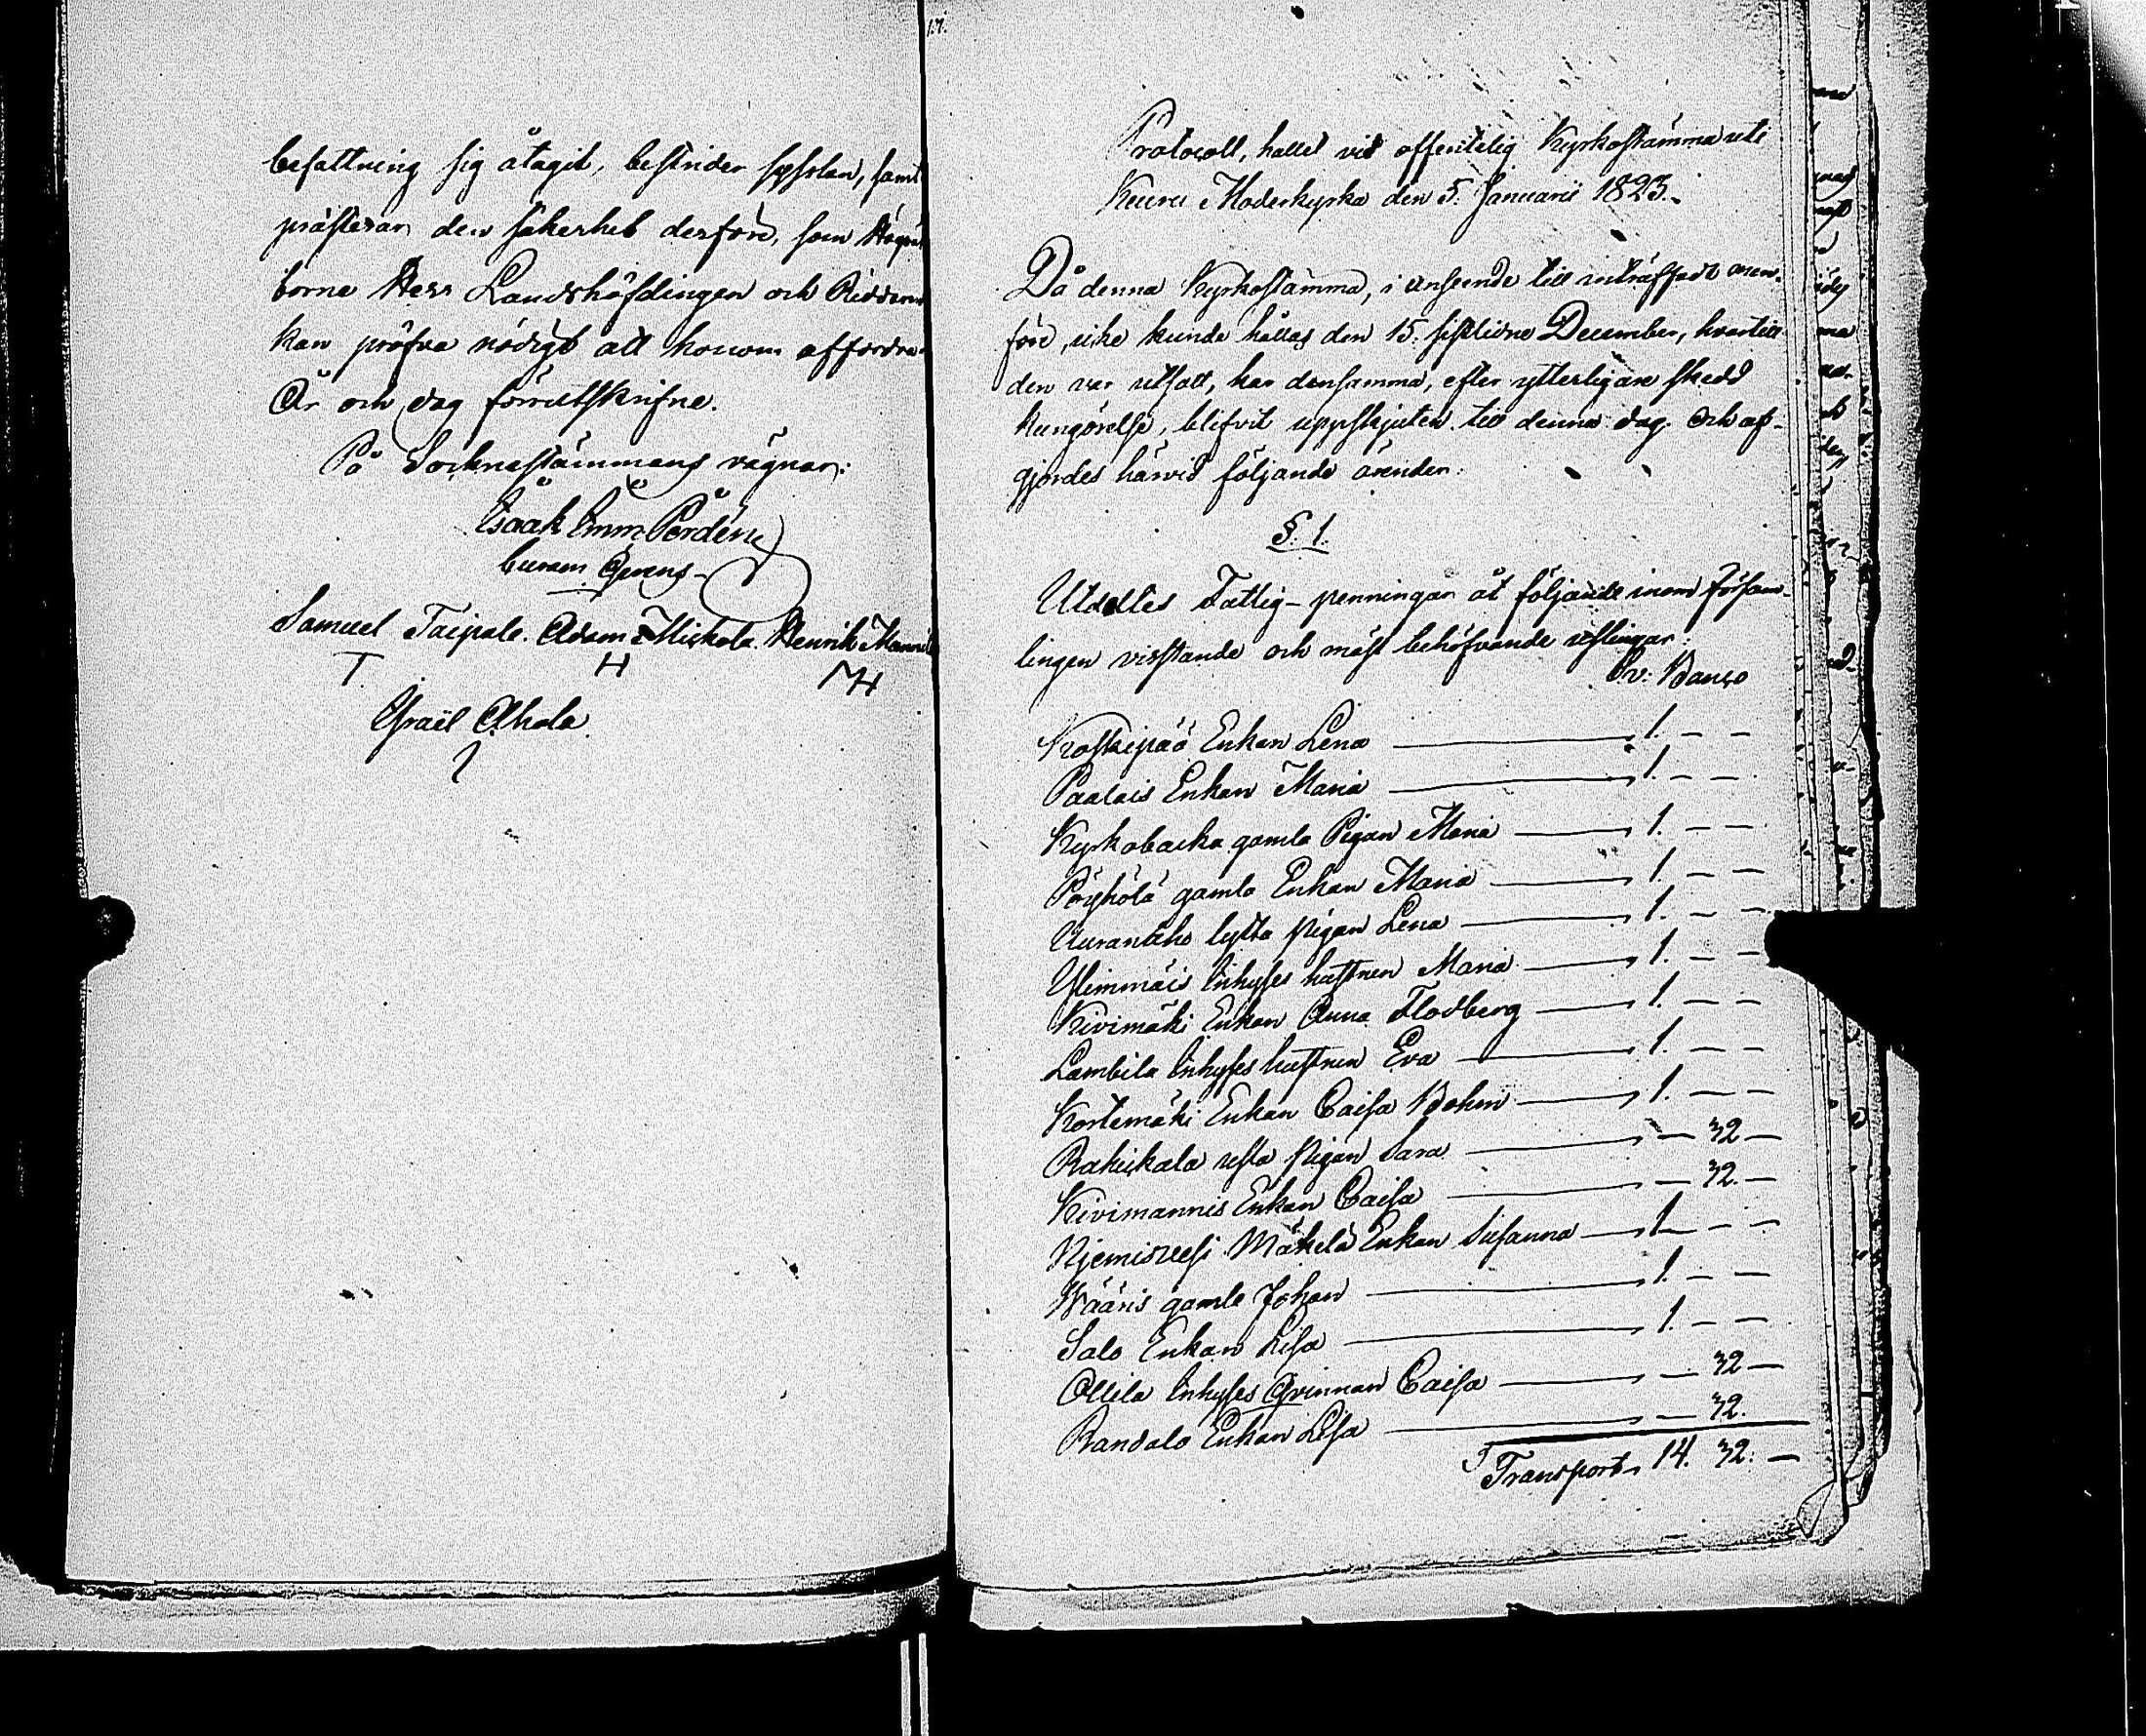 befattning sig åtagit, bestrider sysslan, samt
præsterar den säkerhet derföre, som Högväl
borne Herr Landshöfdingen och Riddaren
kan pröfva nödigt att honom affordra.
År och dag förrutskrifne.
På Socknestämmans vägnar:
Isaak Emm Perdén
Curam Gerens
Samuel Taipale. Adam Miskola. Henrik Mannila
T H MH
Israël Ahola.
17.
Protocoll, hållet vid offentelig Kyrkostämma uti
Keuru Moderkyrka den 5. Januarii 1823.
Då denna Kyrkostämma, i anseende till inträffadt men-
före, icke kunde hållas den 15. sistlidne December, hvartill
den var utsatt, har densamma, efter ytterligare skedd
kungörelse, blifvit uppskjuten till denna dag. Och af-
gjordes härvid följande ärenden:
§. 1.
Utdeltes Fattig-penningar åt följande inom Församlingen
lingen vistande och mäst behöfvande uslingar:
Sv: Banco
Koskipää Enkan Lena 1. – –
Paalais Enkan Maria 1. – –
Kyrkobacka gamla Pigan Maria 1. – –
Pöyhölä gamla Enkan Maria 1. – –
Uurantaho lytta pigan Lena 1. – –
Ylimmäis Inhyses hustrun Maria 1. – –
Kivimäki Enkan Anna Flodberg 1. – –
Lambila Inhyses hustrun Eva 1. – –
Kortemäki Enkan Caisa Bohm 1. – –
Rakeikala usla pigan Sara – 32 –
Kivimannis Enkan Caisa – 32. –
Njemisvesi Mäkelä Enkan Susanna 1 – –
Wääris gamle Johan 1. – –
Salo Enkan Lisa 1. – –
Ollila Inhyses Qvinnan Caisa – 32 –
Randalo Enkan Lisa – 32.
Transport 14. 32. –